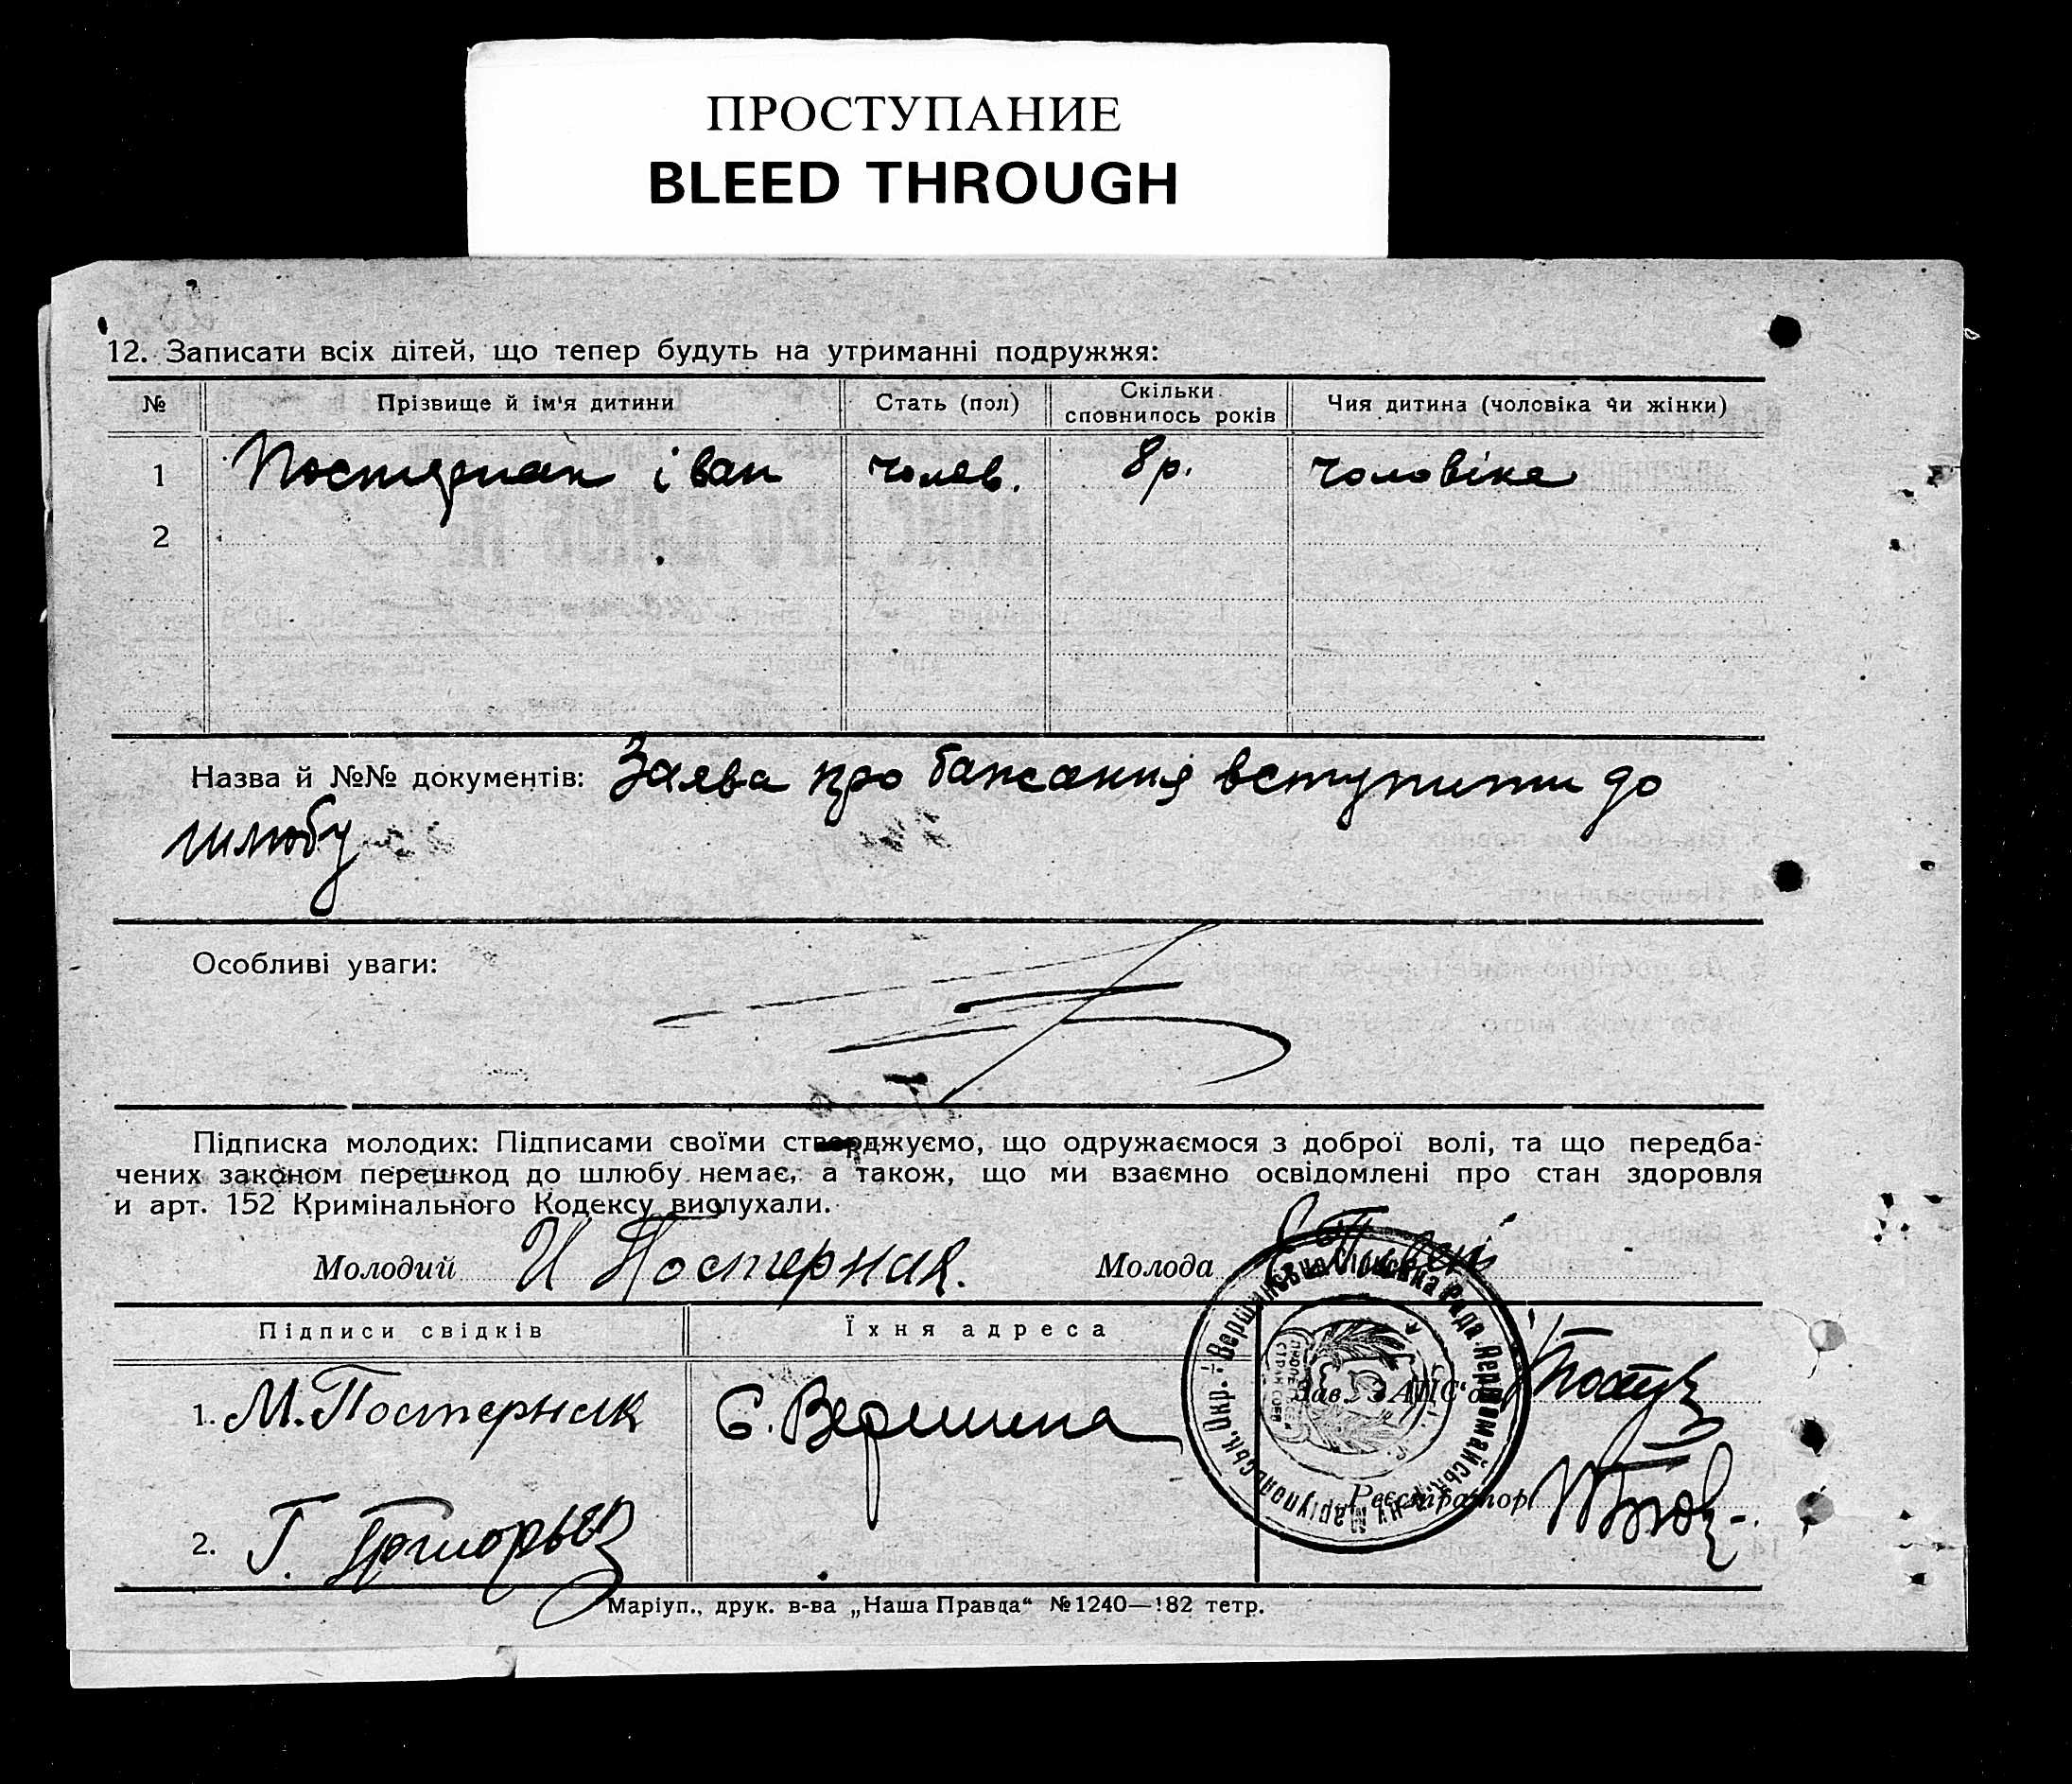 ПРОСТУПАНИЕ
BLEED THROUGH
12. Записати всіх дітей, що тепер будуть на утриманні подружжя:
№ Прізвище й ім'я дитини Стать (пол) Скільки сповнилось років Чия дитина (чоловіка чи жінки)
1 Постернак іван чолов. 8 р. чоловіка
2
Назва й №№ документів: Заява про бажання вступити до
шлюбу
Особливі уваги:
Підписка молодих: Підписами своїми стверджуємо, що одружаємося з доброї волі, та що передба-
чених законом перешкод до шлюбу немає, а також, що ми взаємно освідомлені про стан здоровля
и арт. 152 Кримінального Кодексу вислухали.
Молодий И Постернак. Молода
Підписи свідків Їхня адреса
1. М. Постернак С. Вершина
Зав. ЗАПС'ом
2. Г. Григорьев
Реєстратор
Вершинівська Сільська Рада Первомайськ. р-ну Маріупольськ. Окр.
Маріуп., друк. в-ва „Наша Правда“ № 1240—182 тетр.